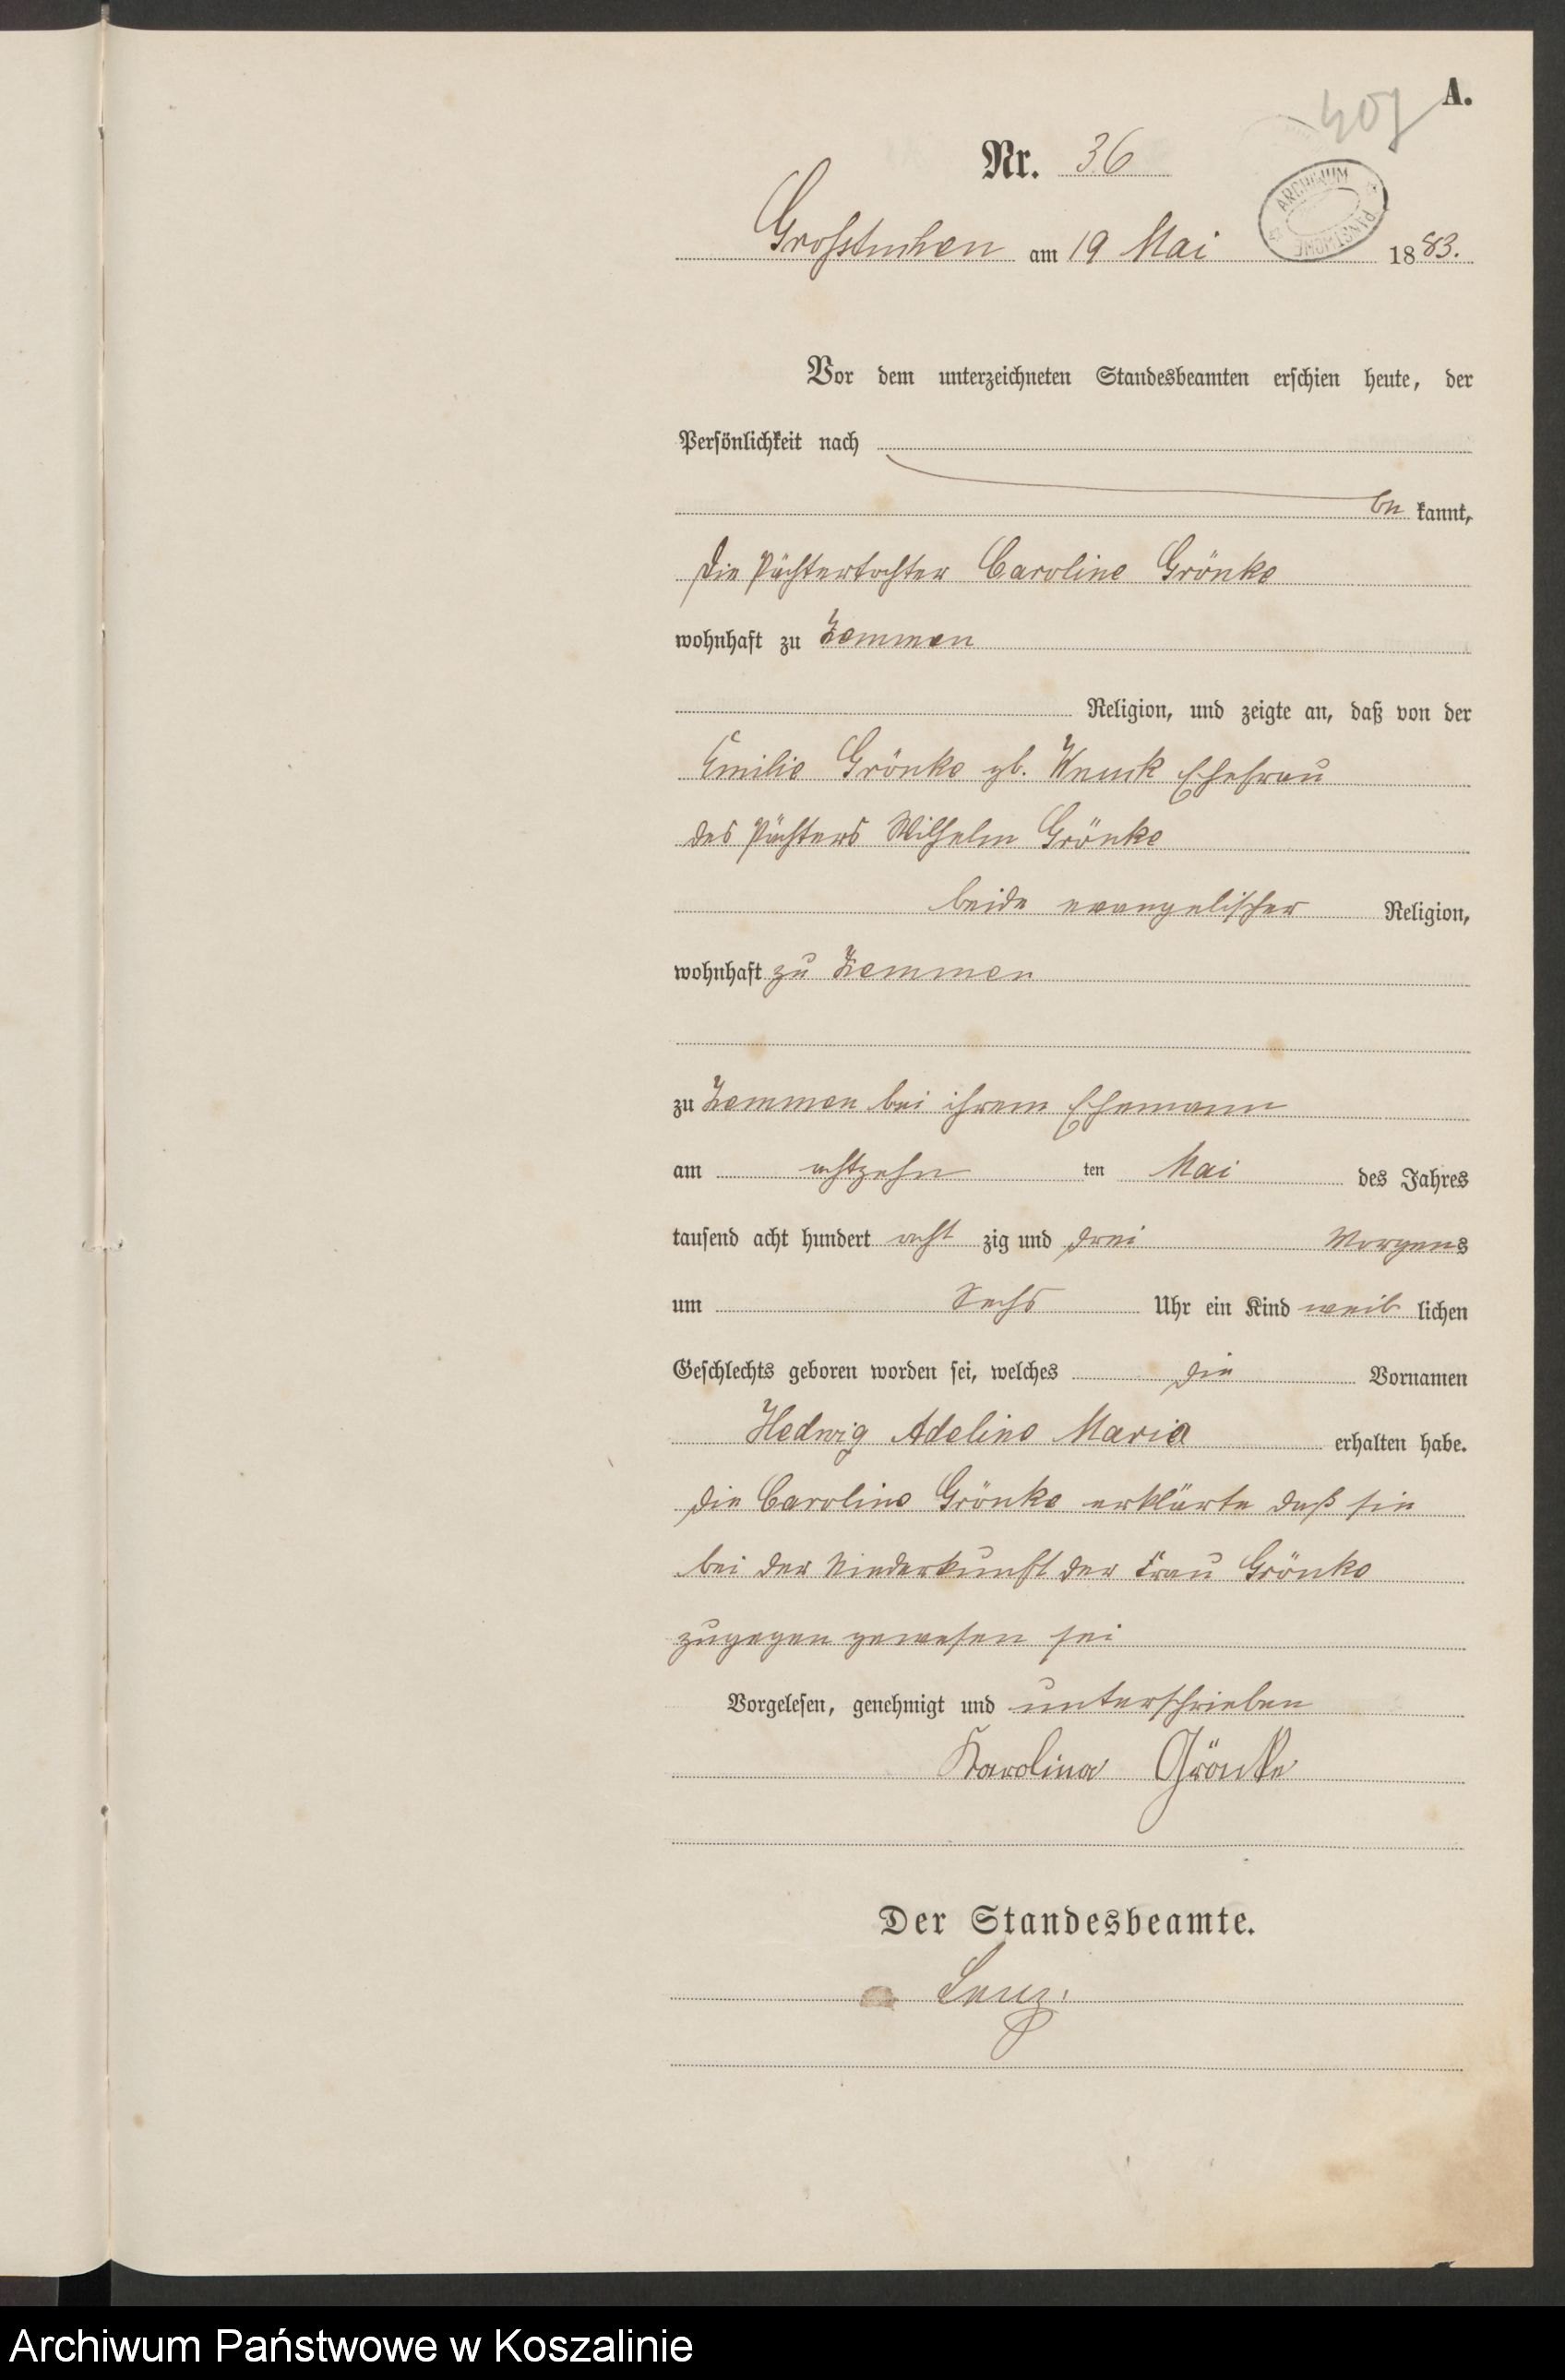 A.
Nr. 36
ARCHIWUM PAŃSTWOWE
Großtuchen am 19 Mai 1883.
Vor dem unterzeichneten Standesbeamten erschien heute, der
Persönlichkeit nach
be kannt,
die Pächtertochter Caroline Grönke
wohnhaft zu Zemmen
Religion, und zeigte an, daß von der
Emilie Grönke gb. Ehefrau
des Pächters Wilhelm Grönke
beide evangelischer Religion,
wohnhaft zu Zemmen
zu Zemmen bei ihrem Ehemann
am achtzehn ten Mai des Jahres
tausend acht hundert acht zig und drei Morgens
um Sechs Uhr ein Kind weib lichen
Geschlechts geboren worden sei, welches die Vornamen
Hedwig Adeline Maria erhalten habe.
die Caroline Grönke erklärte daß sie
bei der Niederkunft der Frau Grönke
zugegen gewesen sei
Vorgelesen, genehmigt und unterschrieben
Karolina Grönke
Der Standesbeamte.
Lenz.
Archiwum Państwowe w Koszalinie